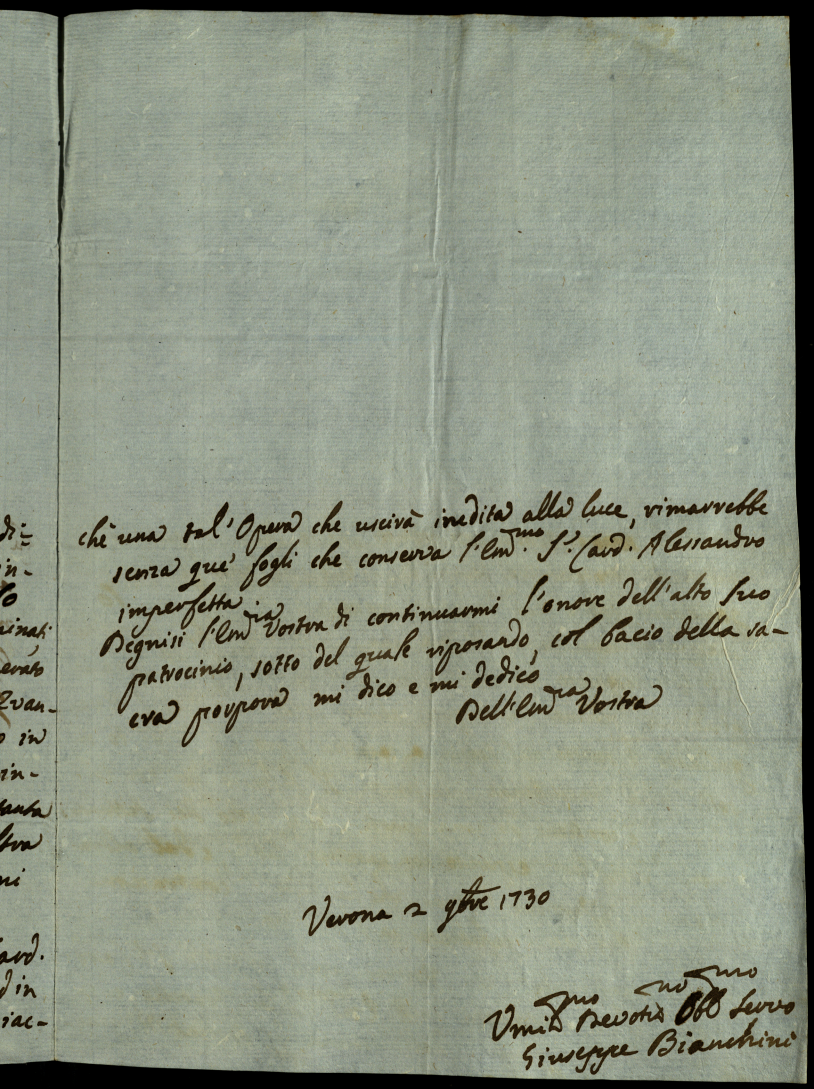 di=
in-
lo
minati
erato
Evan-
o in
in-
tanta
ltra
ni
ard.
d in
iac-
che una tal' Opera che uscirà inedita alla luce, rimarrebbe
senza que' fogli che conserva l'Em.mo S.r Card. Alessandro
imperfetta
Degnisi l'Em.za Vostra di continuarmi l'onore dell'alto suo
patrocinio, sotto del quale riposando, col bacio della sa-
cra porpora mi dico e mi dedico
Dell'Em.za Vostra
Verona 2 9bre 1730
Umil.mo Devotis.mo Obb.mo Servo
Giuseppe Bianchini